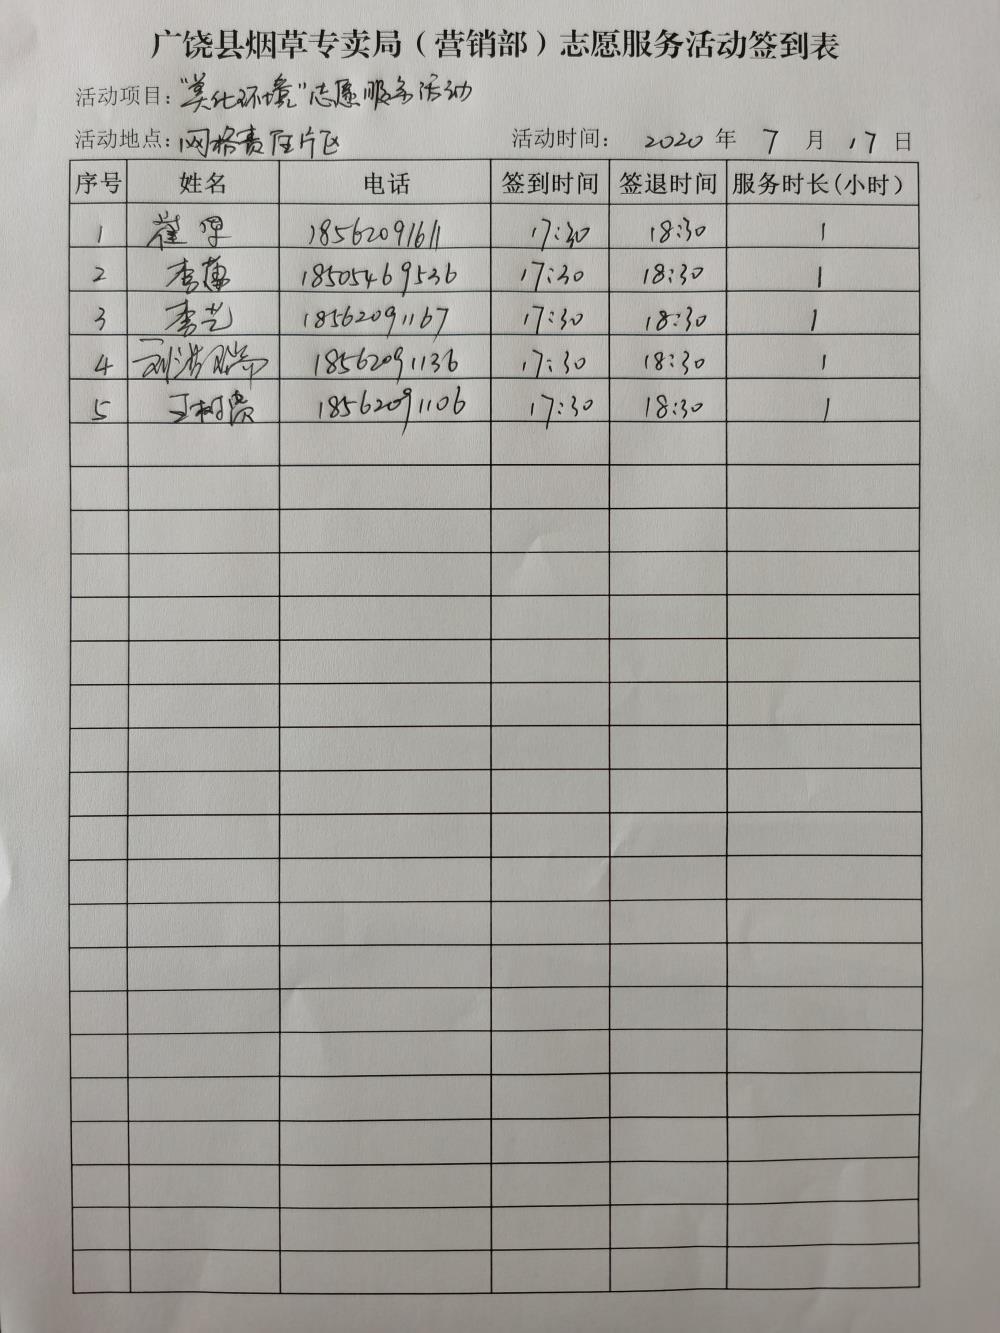 广饶县烟草专卖局（营销部）志愿服务活动签到表
活动项目："美化环境"志愿服务活动
活动地点：网格责任片区 活动时间： 2020 年 7 月 17 日
序号 姓名 电话 签到时间 签退时间 服务时长(小时）
1 崔 18562091611 17:30 18:30 1
2 李 18505469536 17:30 18:30 1
3 李艺 18562091167 17:30 18:30 1
4 刘洪 18562091136 17:30 18:30 1
5 丁树贵 18562091106 17:30 18:30 1